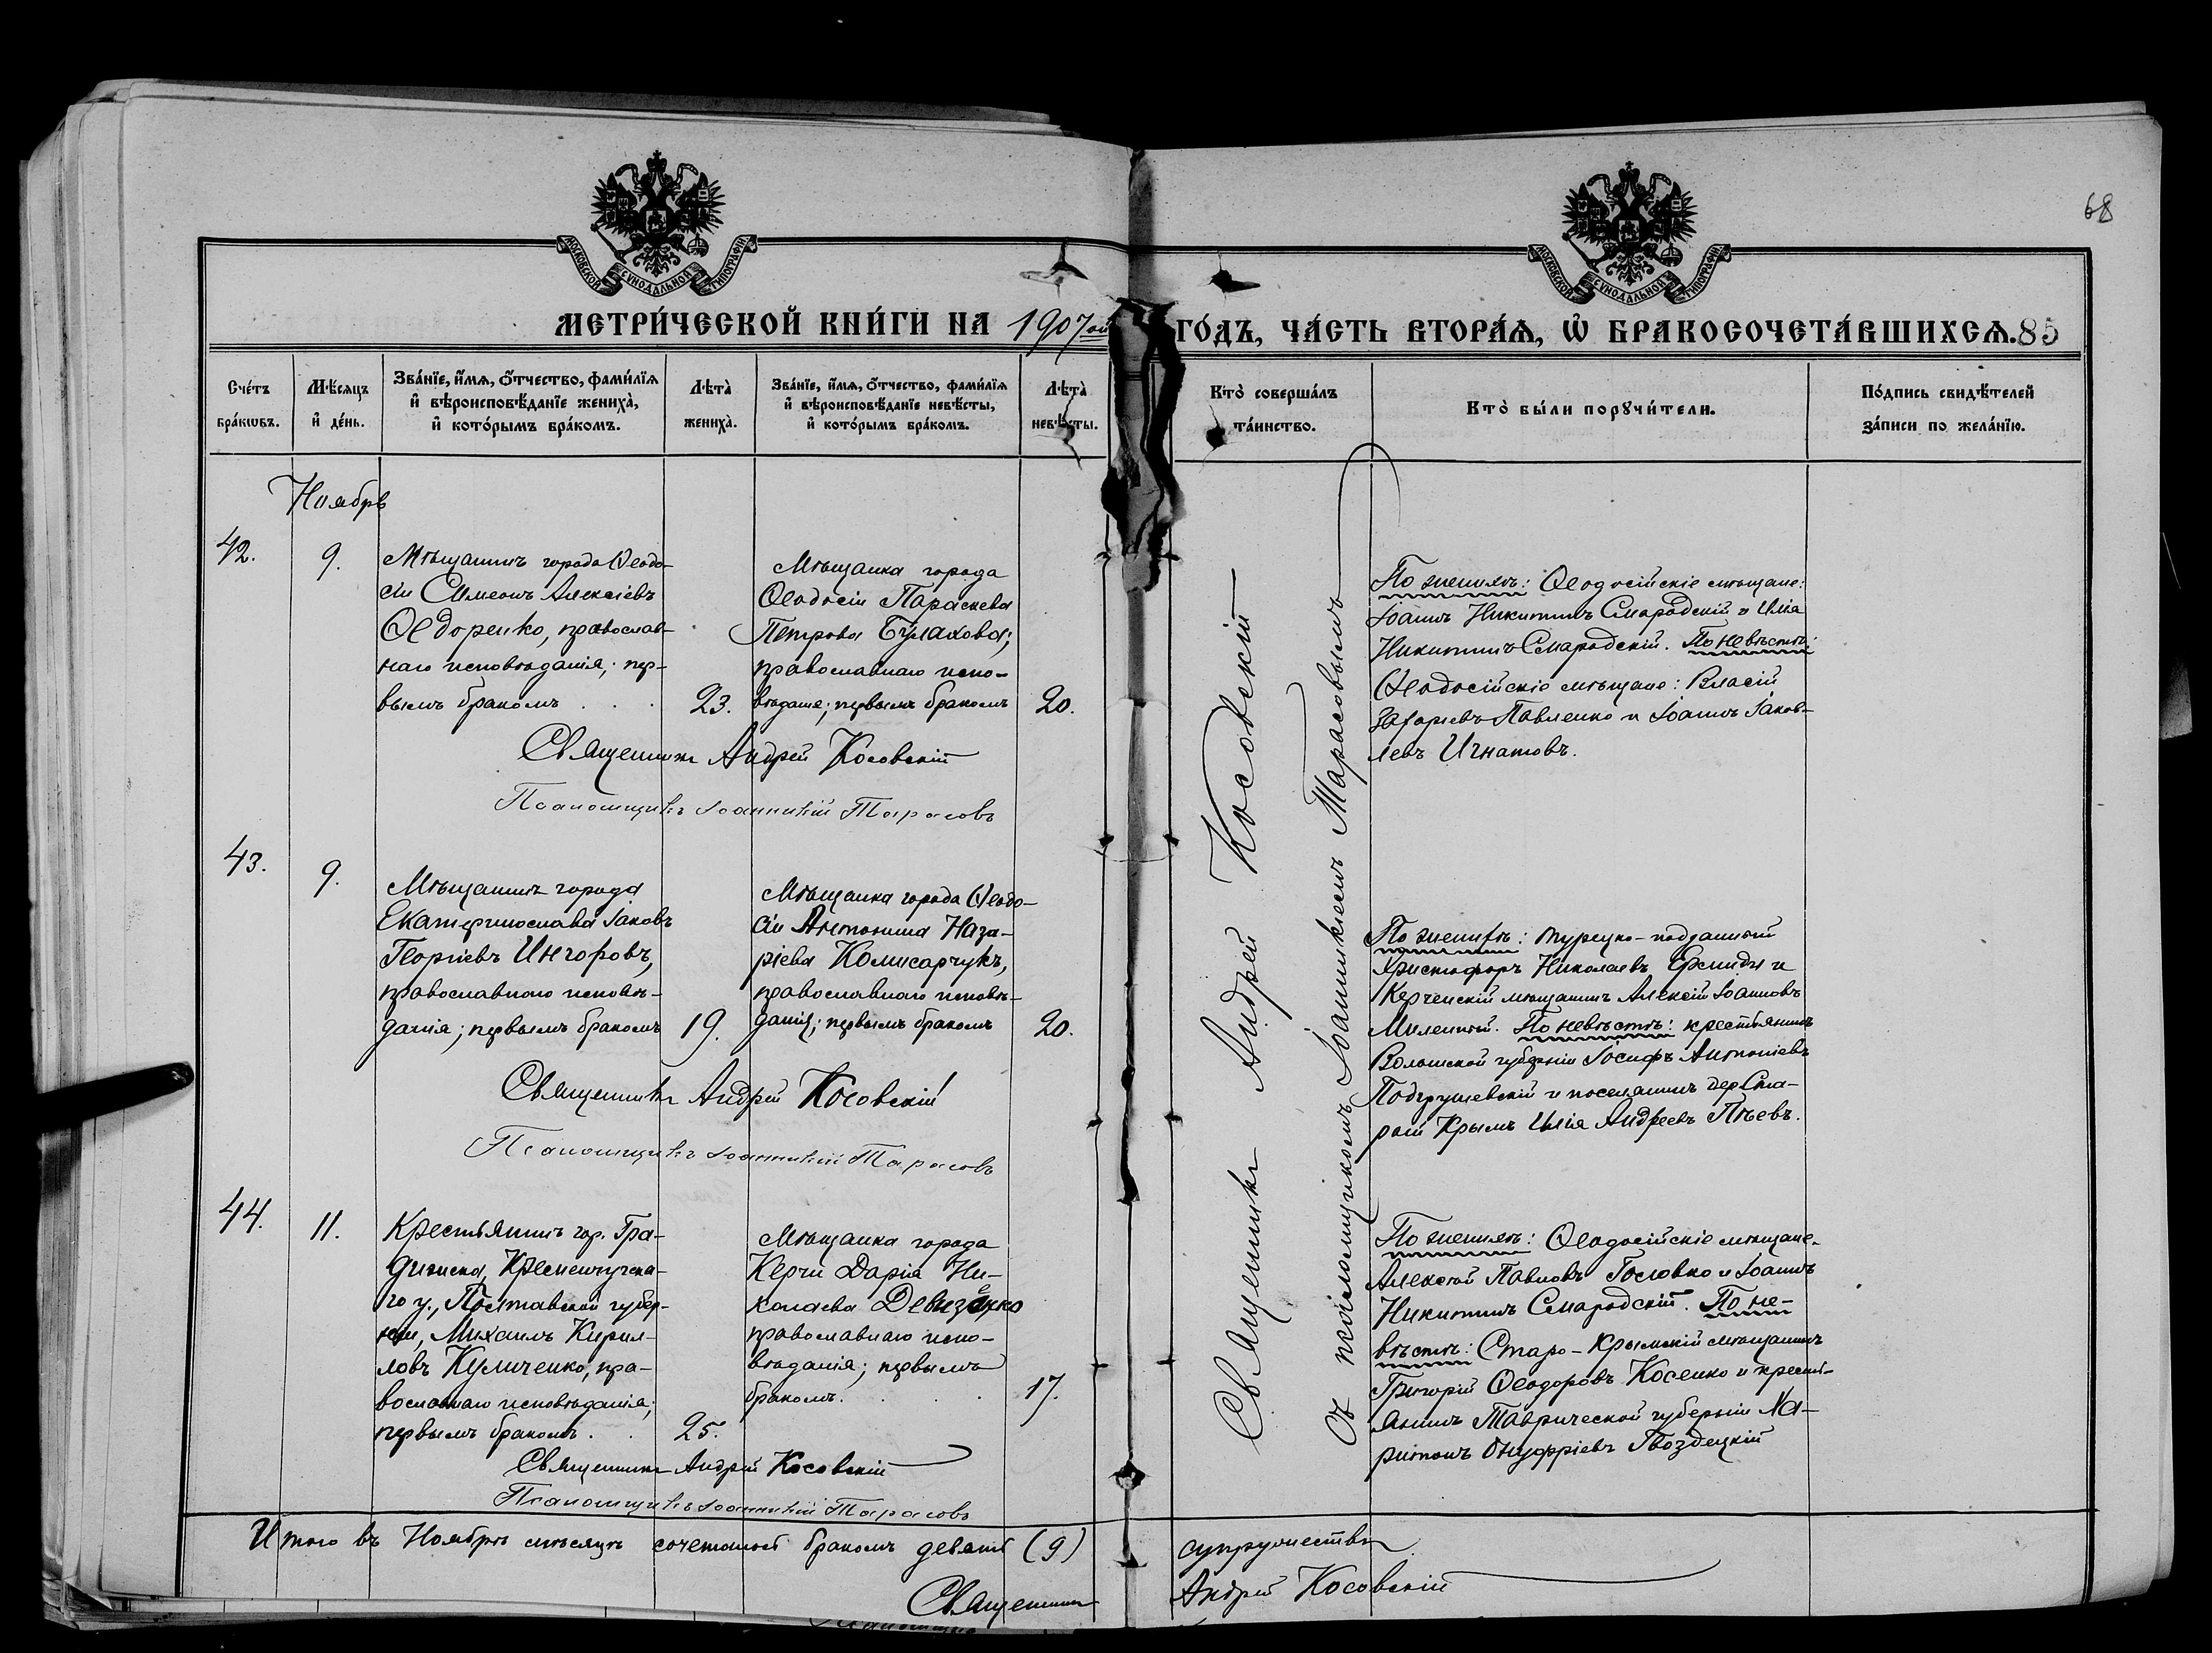 68
МОСКОВСКОЙ СѴНОДАЛЬНОЙ ТИПОГРАФІИ
МОСКОВСКОЙ СѴНОДАЛЬНОЙ ТИПОГРАФІИ
МЕТРИ́ЧЕСКОЙ КНИ́ГИ НА 1907ой ГО́ДЪ, ЧА́СТЬ ВТОРА́Ѧ, Ѡ҆ БРАКОСОЧЕТА́ВШИХСѦ. 85
Сче́тъ бра́кѡвъ.
Мѣ́сѧцъ и҆ де́нь.
Зва́нїе, и҆́мѧ, ѻ҆́тчество, фами́лїѧ и҆ вѣроисповѣ́данїе жениха̀, и҆ кото́рымъ бра́комъ.
Лѣта̀ жениха̀.
Зва́нїе, и҆́мѧ, ѻ҆́тчество, фами́лїѧ и҆ вѣроисповѣ́данїе невѣ́сты, и҆ кото́рымъ бра́комъ.
Лѣта̀ невѣ́сты.
Кто̀ соверша́лъ та́инство.
Кто̀ бы́ли порꙋчи́тели.
По́дпись свидѣ́телей за́писи по жела́нїю.
Ноябрь
42.
9.
Мѣщанинъ города Ѳеодо-
сіи Симеонъ Алексіевъ
Ѳедоренко, православ-
наго исповѣданія; пер-
вымъ бракомъ . . .
23.
Мѣщанка города
Ѳеодосіи Параскева
Петрова Булахова;
православнаго испо-
вѣданія; первымъ бракомъ
20.
Священникъ Андрей Косовскій
Псаломщикъ Іоанникій Тарасовъ
По женихѣ: Ѳеодосійскіе мѣщане:
Іоаннъ Никитинъ Смародскій и Илія
Никитинъ Смародскій. По невѣстѣ:
Ѳеодосійскіе мѣщане: Власій
Захаріевъ Павленко и Іоаннъ Іаков-
левъ Игнатовъ.
43.
9.
Мѣщанинъ города
Екатеринослава Іаковъ
Георгіевъ Ингоровъ,
православнаго исповѣ-
данія; первымъ бракомъ
19.
Мѣщанка города Ѳеодо-
сіи Антонина Наза-
ріева Комисарчукъ,
православнаго исповѣ-
данія; первымъ бракомъ
20.
Священникъ Андрей Косовскій
Псаломщикъ Іоанникій Тарасовъ
По женихѣ: турецко-подданный
Христофоръ Николаевъ и
Керченскій мѣщанинъ Алексій Іоанновъ
По невѣстѣ: крестьянинъ
Волынской губерніи Іосифъ Антоніевъ
Подгрушевскій и поселянинъ дер. Ста-
рый Крымъ Илія Андреевъ
44.
11.
Крестьянинъ гор. Гра-
дижска, Кременчугска-
го у., Полтавской губер-
ніи, Михаилъ Кирил-
ловъ Куличенко, пра-
вославнаго исповѣданія;
первымъ бракомъ. .
25.
Мѣщанка города
Керчи Дарія Ни-
колаева Девизенко
православнаго испо-
вѣданія; первымъ
бракомъ. . .
17.
Священникъ Андрей Косовскій
Псаломщикъ Іоанникій Тарасовъ
По женихѣ: Ѳеодосійскіе мѣщане
Алексій Павловъ Головко и Іоаннъ
Никитинъ Смародскій. По не-
вѣстѣ: Старо-Крымскій мѣщанинъ
Григорій Ѳеодоровъ Косенко и кресть-
янинъ Таврической губерніи Ха-
ритонъ Онуфріевъ Гвоздецкій
Священникъ Андрей Косовскій
съ псаломщикомъ Іоанникіемъ Тарасовымъ
Итого въ Ноябрѣ мѣсяцѣ сочеталось бракомъ девять (9) супружествъ
Священникъ Андрей Косовскій